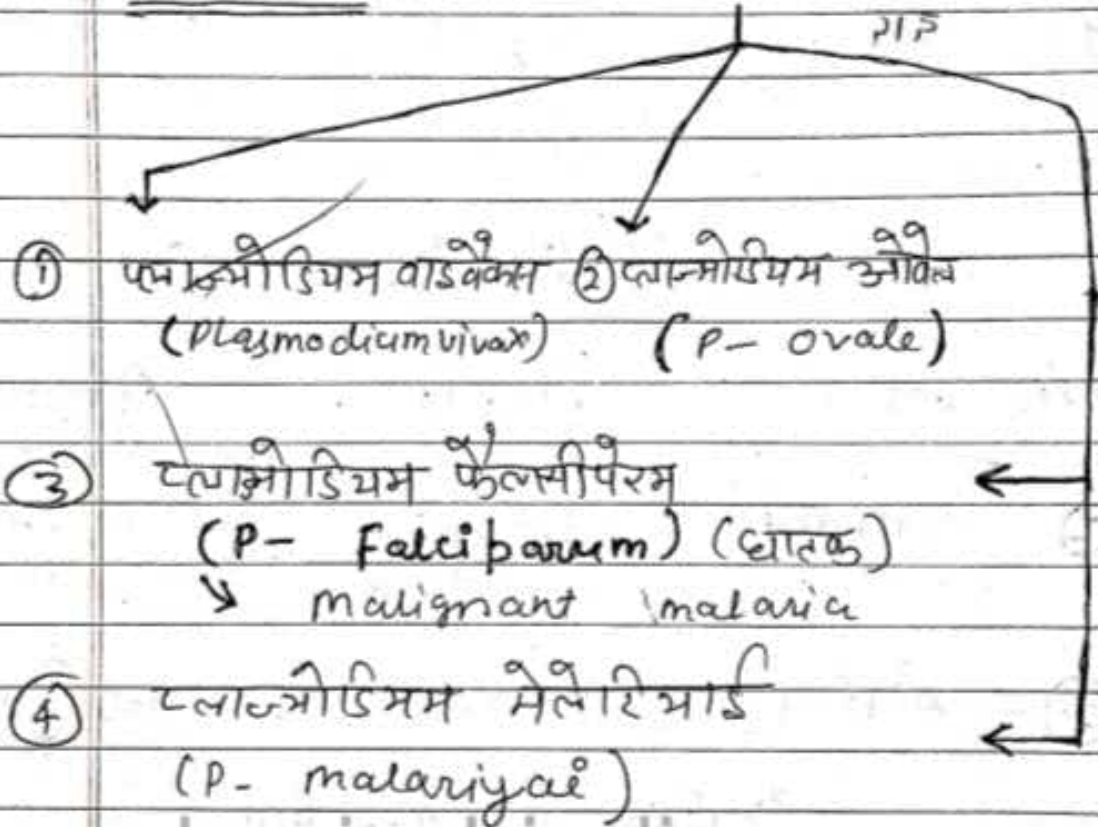 ① प्लाज्मोडियम वाइवेक्स ② प्लाज्मोडियम ओवेल
(Plasmodium vivax) (P- ovale)
③ प्लाज्मोडियम फैल्सीपेरम
(P- Falciparum) (घातक)
↘ malignant malaria
④ प्लाज्मोडियम मेलेरियाई
(P- malariyae)